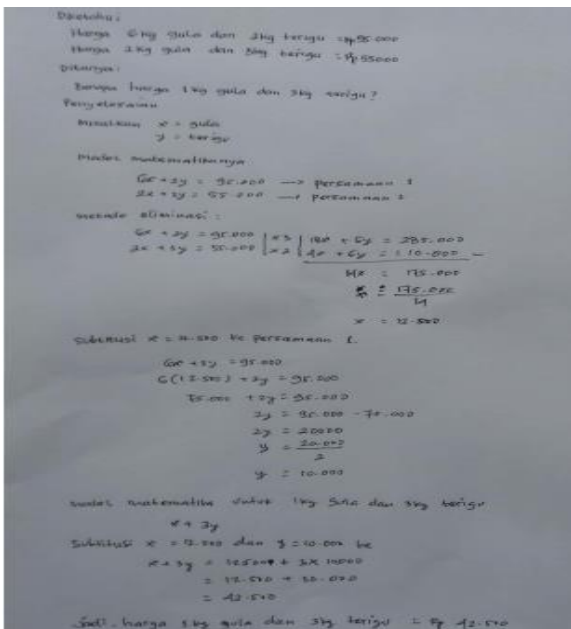 Diketahui:
Harga 6 kg gula dan 2kg terigu = Rp 95.000
Harga 2kg gula dan 3kg terigu = Rp 55000
Ditanya:
Berapa harga 1kg gula dan 3kg terigu?
Penyelesaian
Misalkan x = gula
y = terigu
Model matematikanya
6x + 2y = 95.000 → persamaan 1
2x + 3y = 55.000 → persamaan 2
metode eliminasi:
6x + 2y = 95.000 | x3 | 18x + 6y = 285.000
2x + 3y = 55.000 | x2 | 4x + 6y = 110.000 -
14x = 175.000
x = 175.000
14
x = 12.500
Subtitusi x = 12.500 ke persamaan 1.
6x + 2y = 95.000
6(12.500) + 2y = 95.000
75.000 + 2y = 95.000
2y = 95.000 - 75.000
2y = 20000
y = 20.000
2
y = 10.000
model matematika untuk 1kg gula dan 3kg terigu
x + 3y
Subtitusi x = 12.500 dan y = 10.000 ke
x + 3y = 12500 + 3x 10000
= 12.500 + 30.000
= 42.500
Jadi harga 1 kg gula dan 3kg terigu = Rp 42.500